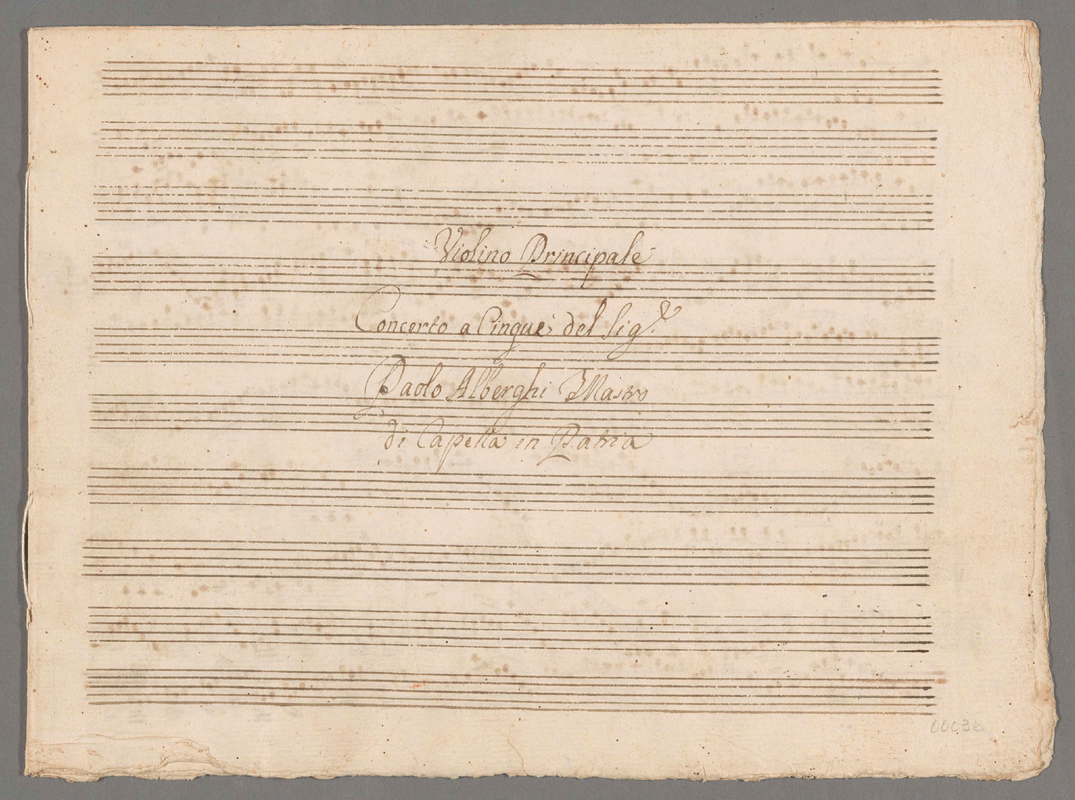 Violino Principale
Concerto a Cinque del Sig.r
Paolo Alberghi Mastro
di Capella in Patria